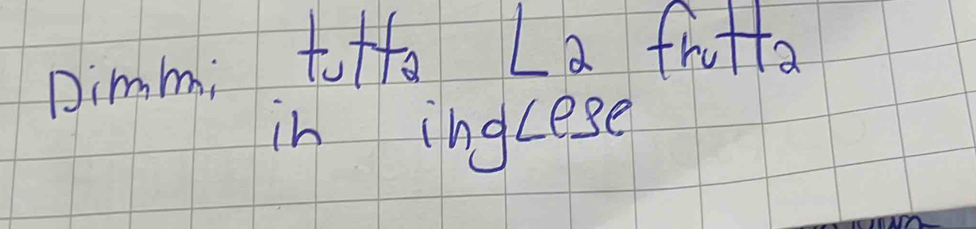 Dimmi tutta La frutta
in inglese